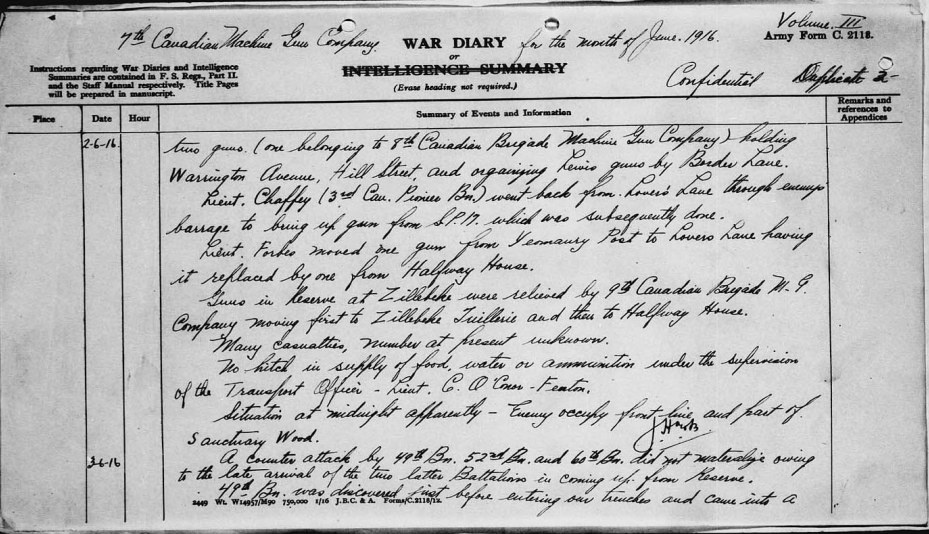 Volume. III
7th Canadian Machine Gun Company. WAR DIARY for the month of June. 1916.
Army Form C. 2118.
or
INTELLIGENCE SUMMARY
Instructions regarding War Diaries and Intelligence
Summaries are contained in F. S. Regs., Part II.
and the Staff Manual respectively. Title Pages
will be prepared in manuscript.
(Erase heading not required.)
Confidential Duplicate 2-
Place Date Hour Summary of Events and Information Remarks and references to Appendices
2-6-16 two guns. (one belonging to 8th Canadian Brigade Machine Gun Company) - holding
Warrington Avenue, Hill Street, and organizing Lewis guns by Border Lane.
Lieut. Chaffey (3rd Can. Pioneer Bn.) went back from Lovers Lane through enemys
barrage to bring up gun from S.P.17. which was subsequently done.
Lieut. Forbes moved one gun from Yeomanry Post to Lovers Lane having
it replaced by one from Halfway House.
Guns in Reserve at Zillebeke were relieved by 9th Canadian Brigade M. G.
Company moving first to Zillebeke Tuillerie and then to Halfway House.
Many casualties, number at present unknown.
No hitch in supply of food, water or ammunition under the supervision
of the Transport Officer - Lieut. C. O'Conor-Fenton.
Situation at midnight apparently - Enemy occupy front line and part of
Sanctuary Wood.
3-6-16 A counter attack by 49th Bn. 52nd Bn. and 60th Bn. did not materialize owing
to the late arrival of the two latter Battalions in coming up from Reserve.
49th Bn. was discovered just before entering our trenches and came into a
2449 Wt. W14957/M90 750,000 1/16 J.B.C. & A. Forms/C.2118/12.